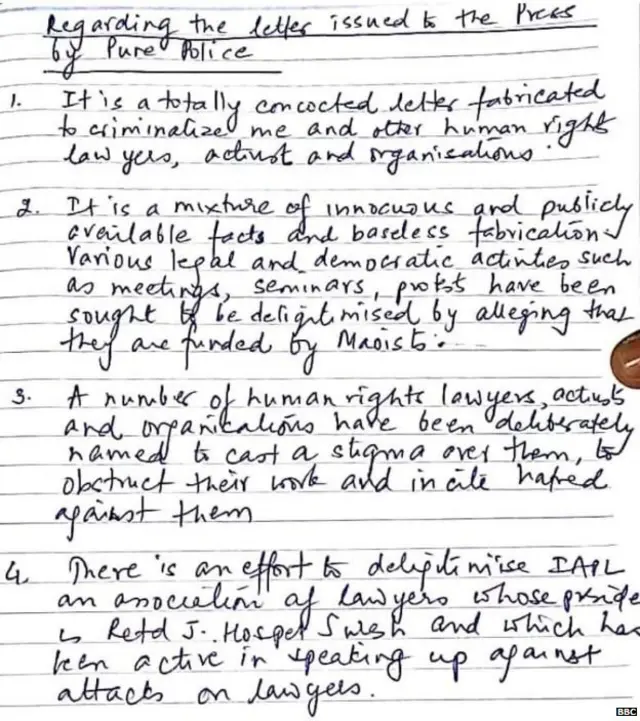 Regarding the letter issued to the Press
by Pune Police
1. It is a totally concocted letter fabricated
to criminalize me and other human right
lawyers, activist and organisations.
2. It is a mixture of innocuous and publicly
available facts and baseless fabrication.
Various legal and democratic activities such
as meetings, seminars, protests have been
sought to be delegitimised by alleging that
they are funded by Maoists.
3. A number of human rights lawyers, activists
and organisations have been deliberately
named to cast a stigma over them, to
obstruct their work and incite hatred
against them
4. There is an effort to delegitimise IAPL
an association of lawyers whose preside
is Retd J. Hospet and which has
been active in speaking up against
attacks on lawyers.
BBC